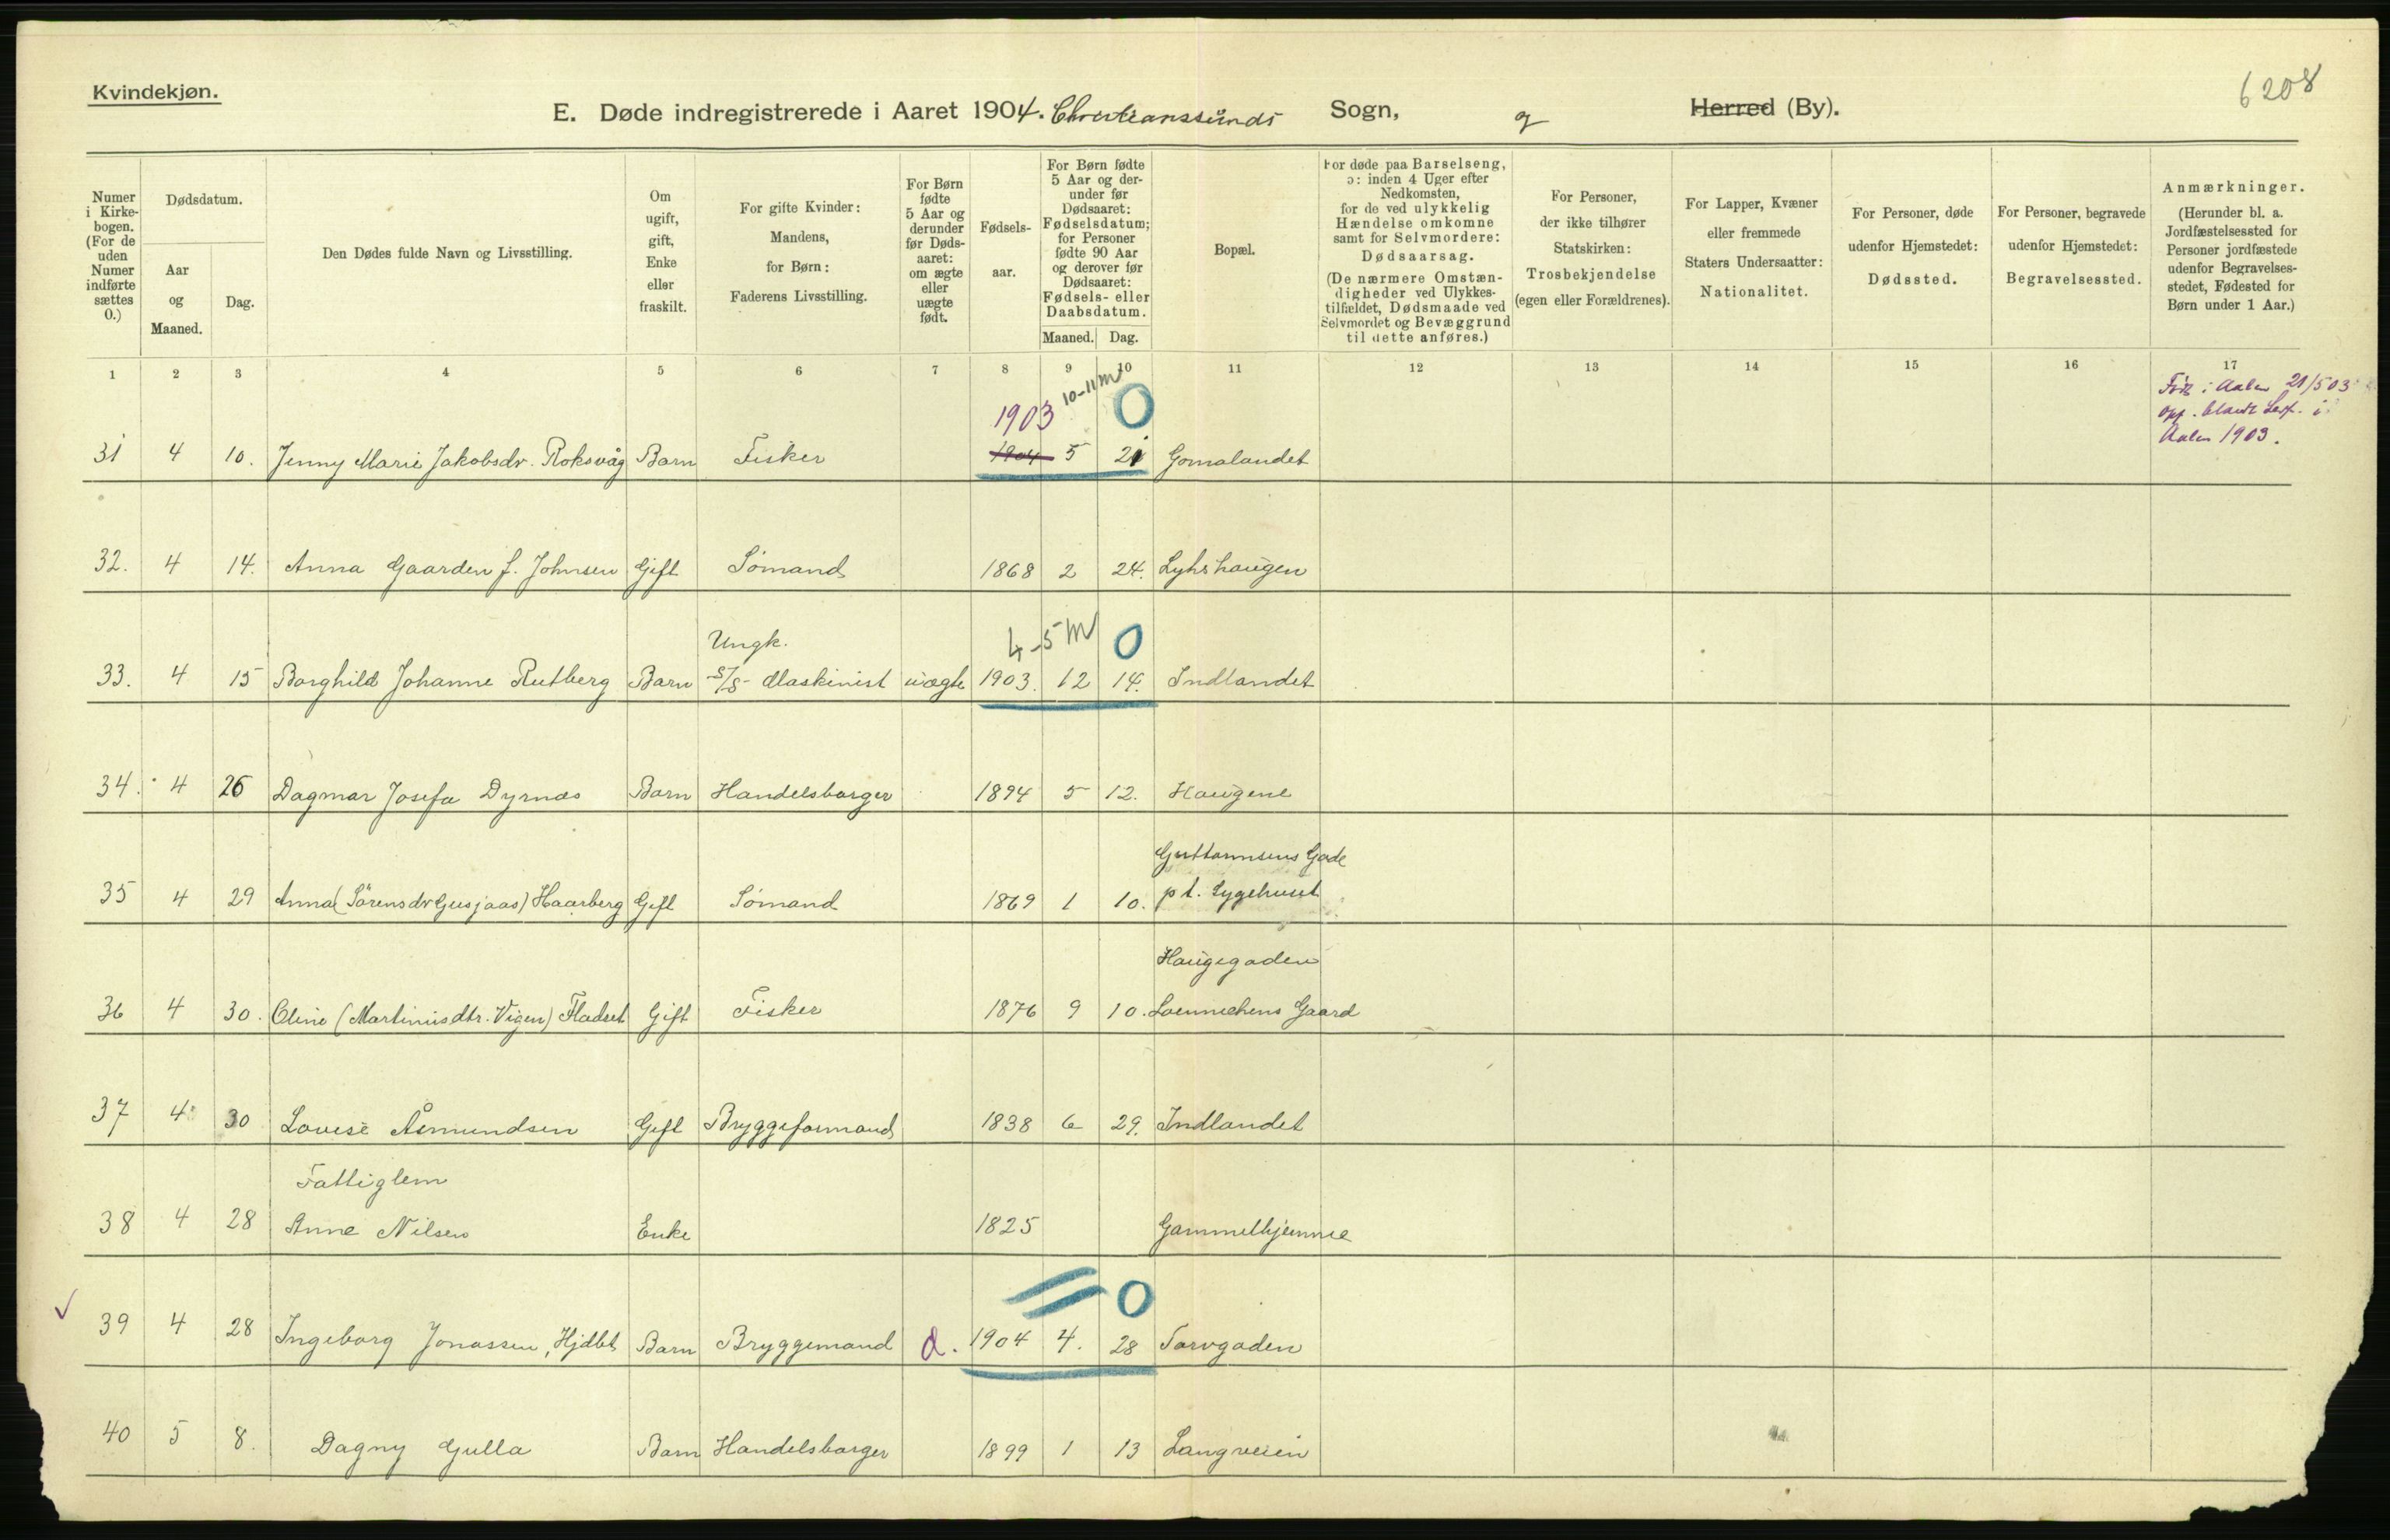 Kvindekjøn.
6208
E. Døde indregistrerede i Aaret 1904. Christianssunds Sogn, Herred (By).
Numer i Kirkebogen. (For de uden Numer indførte sættes 0.)
Dødsdatum.
Aar og Maaned.
Dag.
Den Dødes fulde Navn og Livsstilling.
Om ugift, gift, Enke eller fraskilt.
For gifte Kvinder: Mandens, for Børn: Faderens Livsstilling.
For Børn fødte 5 Aar og derunder før Dødsaaret: om ægte eller uægte født.
Fødselsaar.
For Børn fødte 5 Aar og derunder før Dødsaaret: Fødselsdatum; for Personer fødte 90 Aar og derover før Dødsaaret: Fødsels- eller Daabsdatum.
Maaned. Dag.
Bopæl.
For døde paa Barselseng, ɔ: inden 4 Uger efter Nedkomsten, for de ved ulykkelig Hændelse omkomne samt for Selvmordere: Dødsaarsag. (De nærmere Omstændigheder ved Ulykkestilfældet, Dødsmaade ved Selvmordet og Bevæggrund til dette anføres.)
For Personer, der ikke tilhører Statskirken: Trosbekjendelse (egen eller Forældrenes).
For Lapper, Kvæner eller fremmede Staters Undersaatter: Nationalitet.
For Personer, døde udenfor Hjemstedet: Dødssted.
For Personer, begravede udenfor Hjemstedet: Begravelsessted.
Anmærkninger. (Herunder bl. a. Jordfæstelsessted for Personer jordfæstede udenfor Begravelsesstedet, Fødested for Børn under 1 Aar.)
1 2 3 4 5 6 7 8 9 10 11 12 13 14 15 16 17
1903 10-11 m 0
Født i Aalen 21/5 03
opp. blandt i
Aalen 1903.
31 4 10. Jenny Marie Jakobsdr. Roksvåg Barn Fisker 1904 5 21 Gomalandet
32. 4 14. Anna Gaarden f. Johnsen Gift Sømand 1868 2 24. Lyhshaugen
Ungk. 4-5 m 0
33. 4 15 Borghild Johanne Rutberg Barn S/S Maskinist uægte 1903. 12 14. Indlandet
34. 4 26 Dagmar Josefa Dyrnæs Barn Handelsborger 1894 5 12. Haugene
Guttormsens Gade
35 4 29 Anna (Sørensdr Gusjaas) Haarberg Gift Sømand 1869 1 10. p t. Sygehuset
Haugegaden
36 4 30. Oline (Martinusdtr. Vigen) Fladset Gift Fisker 1876 9 10. Loennechens Gaard
37 4 30 Lovise Åsmundsen Gift Bryggeformand 1838 6 29. Indlandet
Fattiglem
38 4 28 Anne Nilsen Enke 1825 Gammelhjemme
0
39 4 28 Ingeborg Jonassen, Hjdbt Barn Bryggemand d. 1904 4. 28 Torvgaden
40 5 8. Dagny Gulla Barn Handelsborger 1899 1 13 Langveien